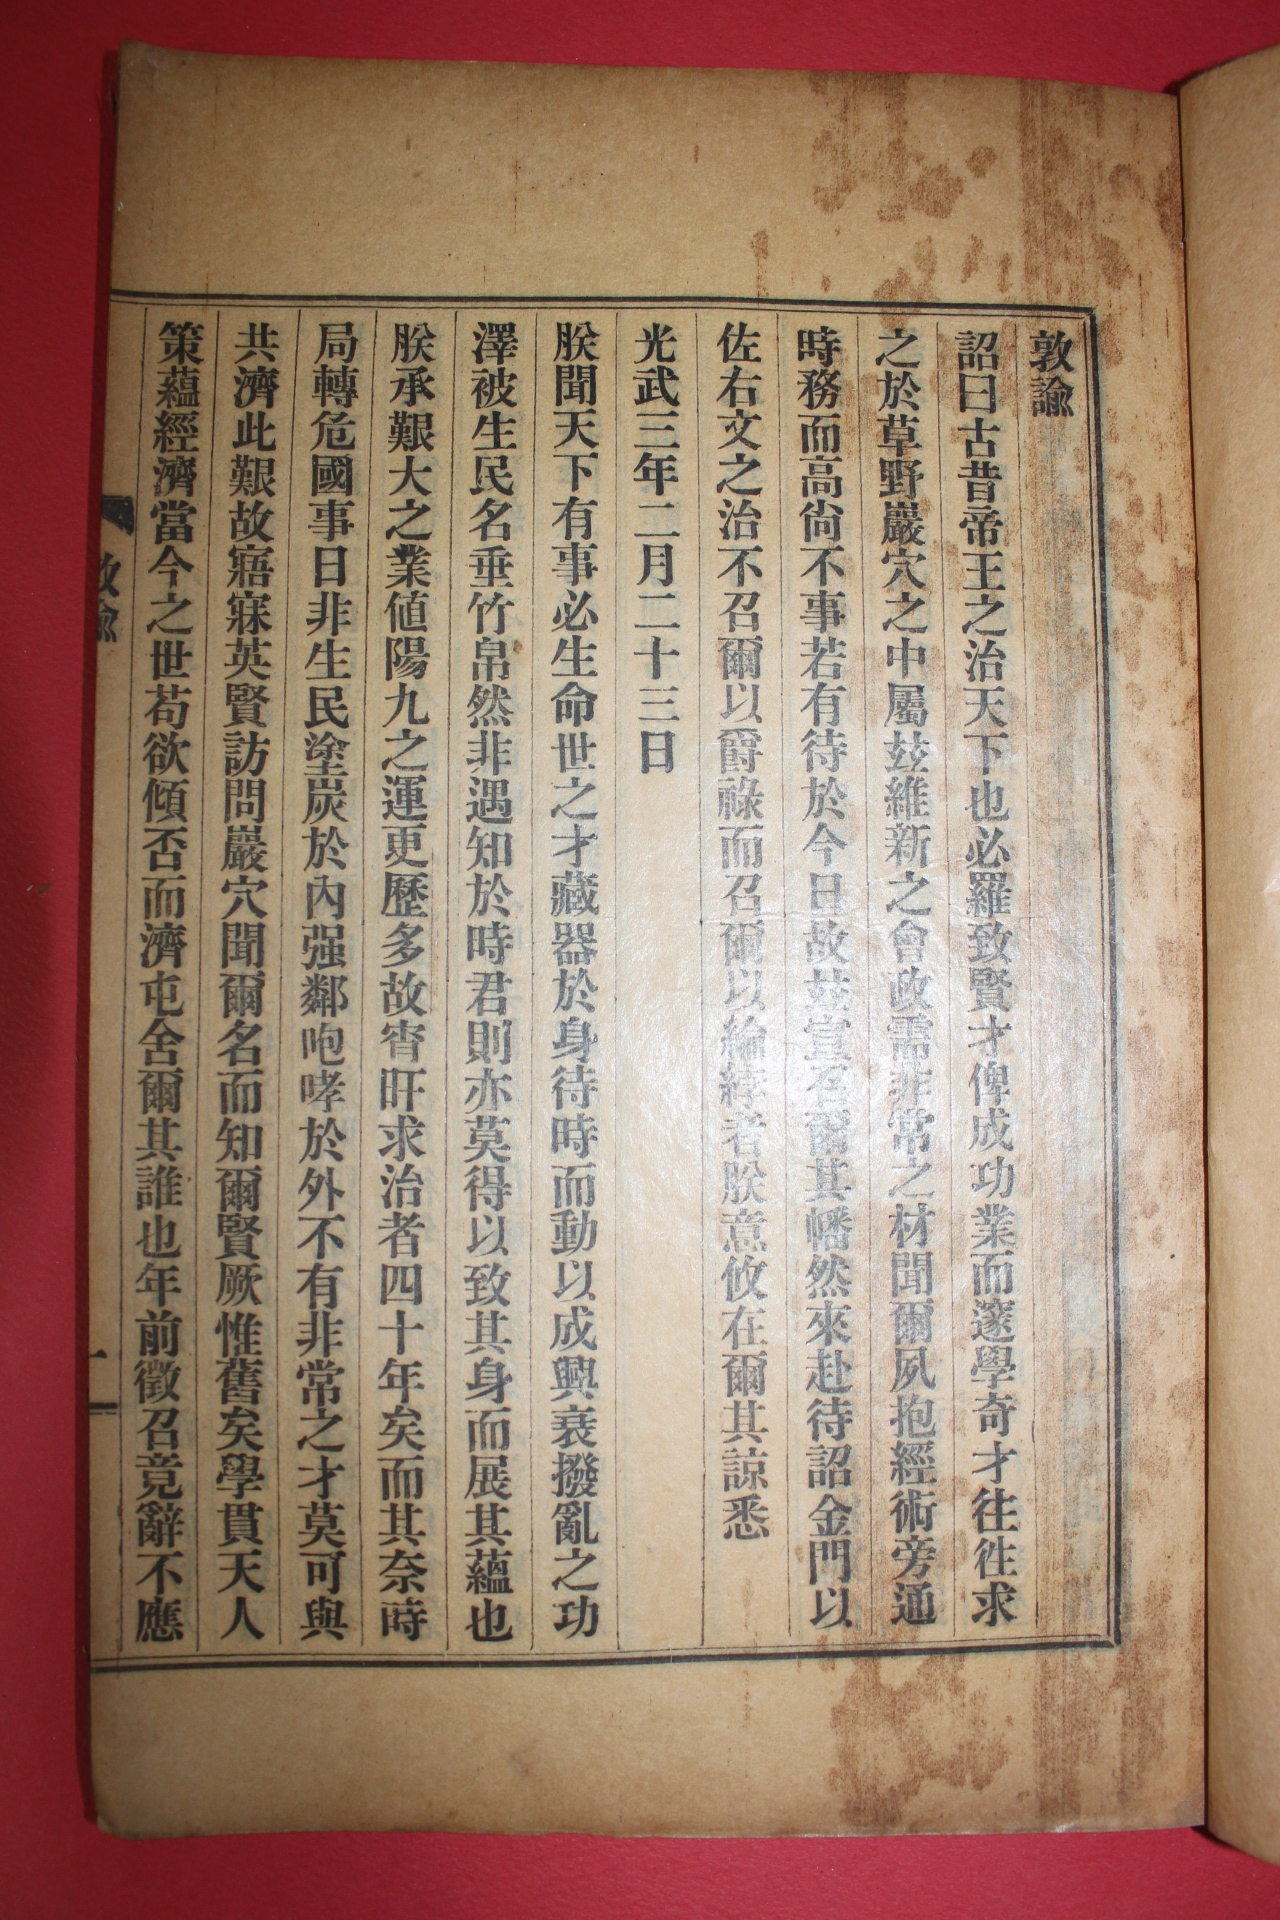 敦諭
詔曰古昔帝王之治天下也必羅致賢才俾成功業而邃學奇才往往求
之於草野巖穴之中屬玆維新之會政需非常之材聞爾夙抱經術旁通
時務而高尙不事若有待於今日故玆宣召爾其幡然來赴待詔金門以
佐右文之治不召爾以爵祿而召爾以綸綍者朕意攸在爾其諒悉
光武三年二月二十三日
朕聞天下有事必生命世之才藏器於身待時而動以成興衰撥亂之功
澤被生民名垂竹帛然非遇知於時君則亦莫得以致其身而展其蘊也
朕承艱大之業値陽九之運更歷多故宵旰求治者四十年矣而其奈時
局轉危國事日非生民塗炭於內强鄰咆哮於外不有非常之才莫可與
共濟此艱故寤寐英賢訪問巖穴聞爾名而知爾賢厥惟舊矣學貫天人
策蘊經濟當今之世苟欲傾否而濟屯舍爾其誰也年前徵召竟辭不應
敦諭
一